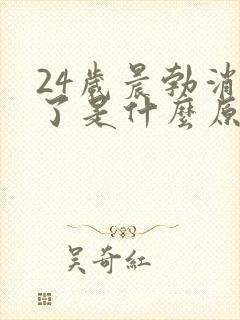 24歲晨勃消
了是什麼原
吴奇紅